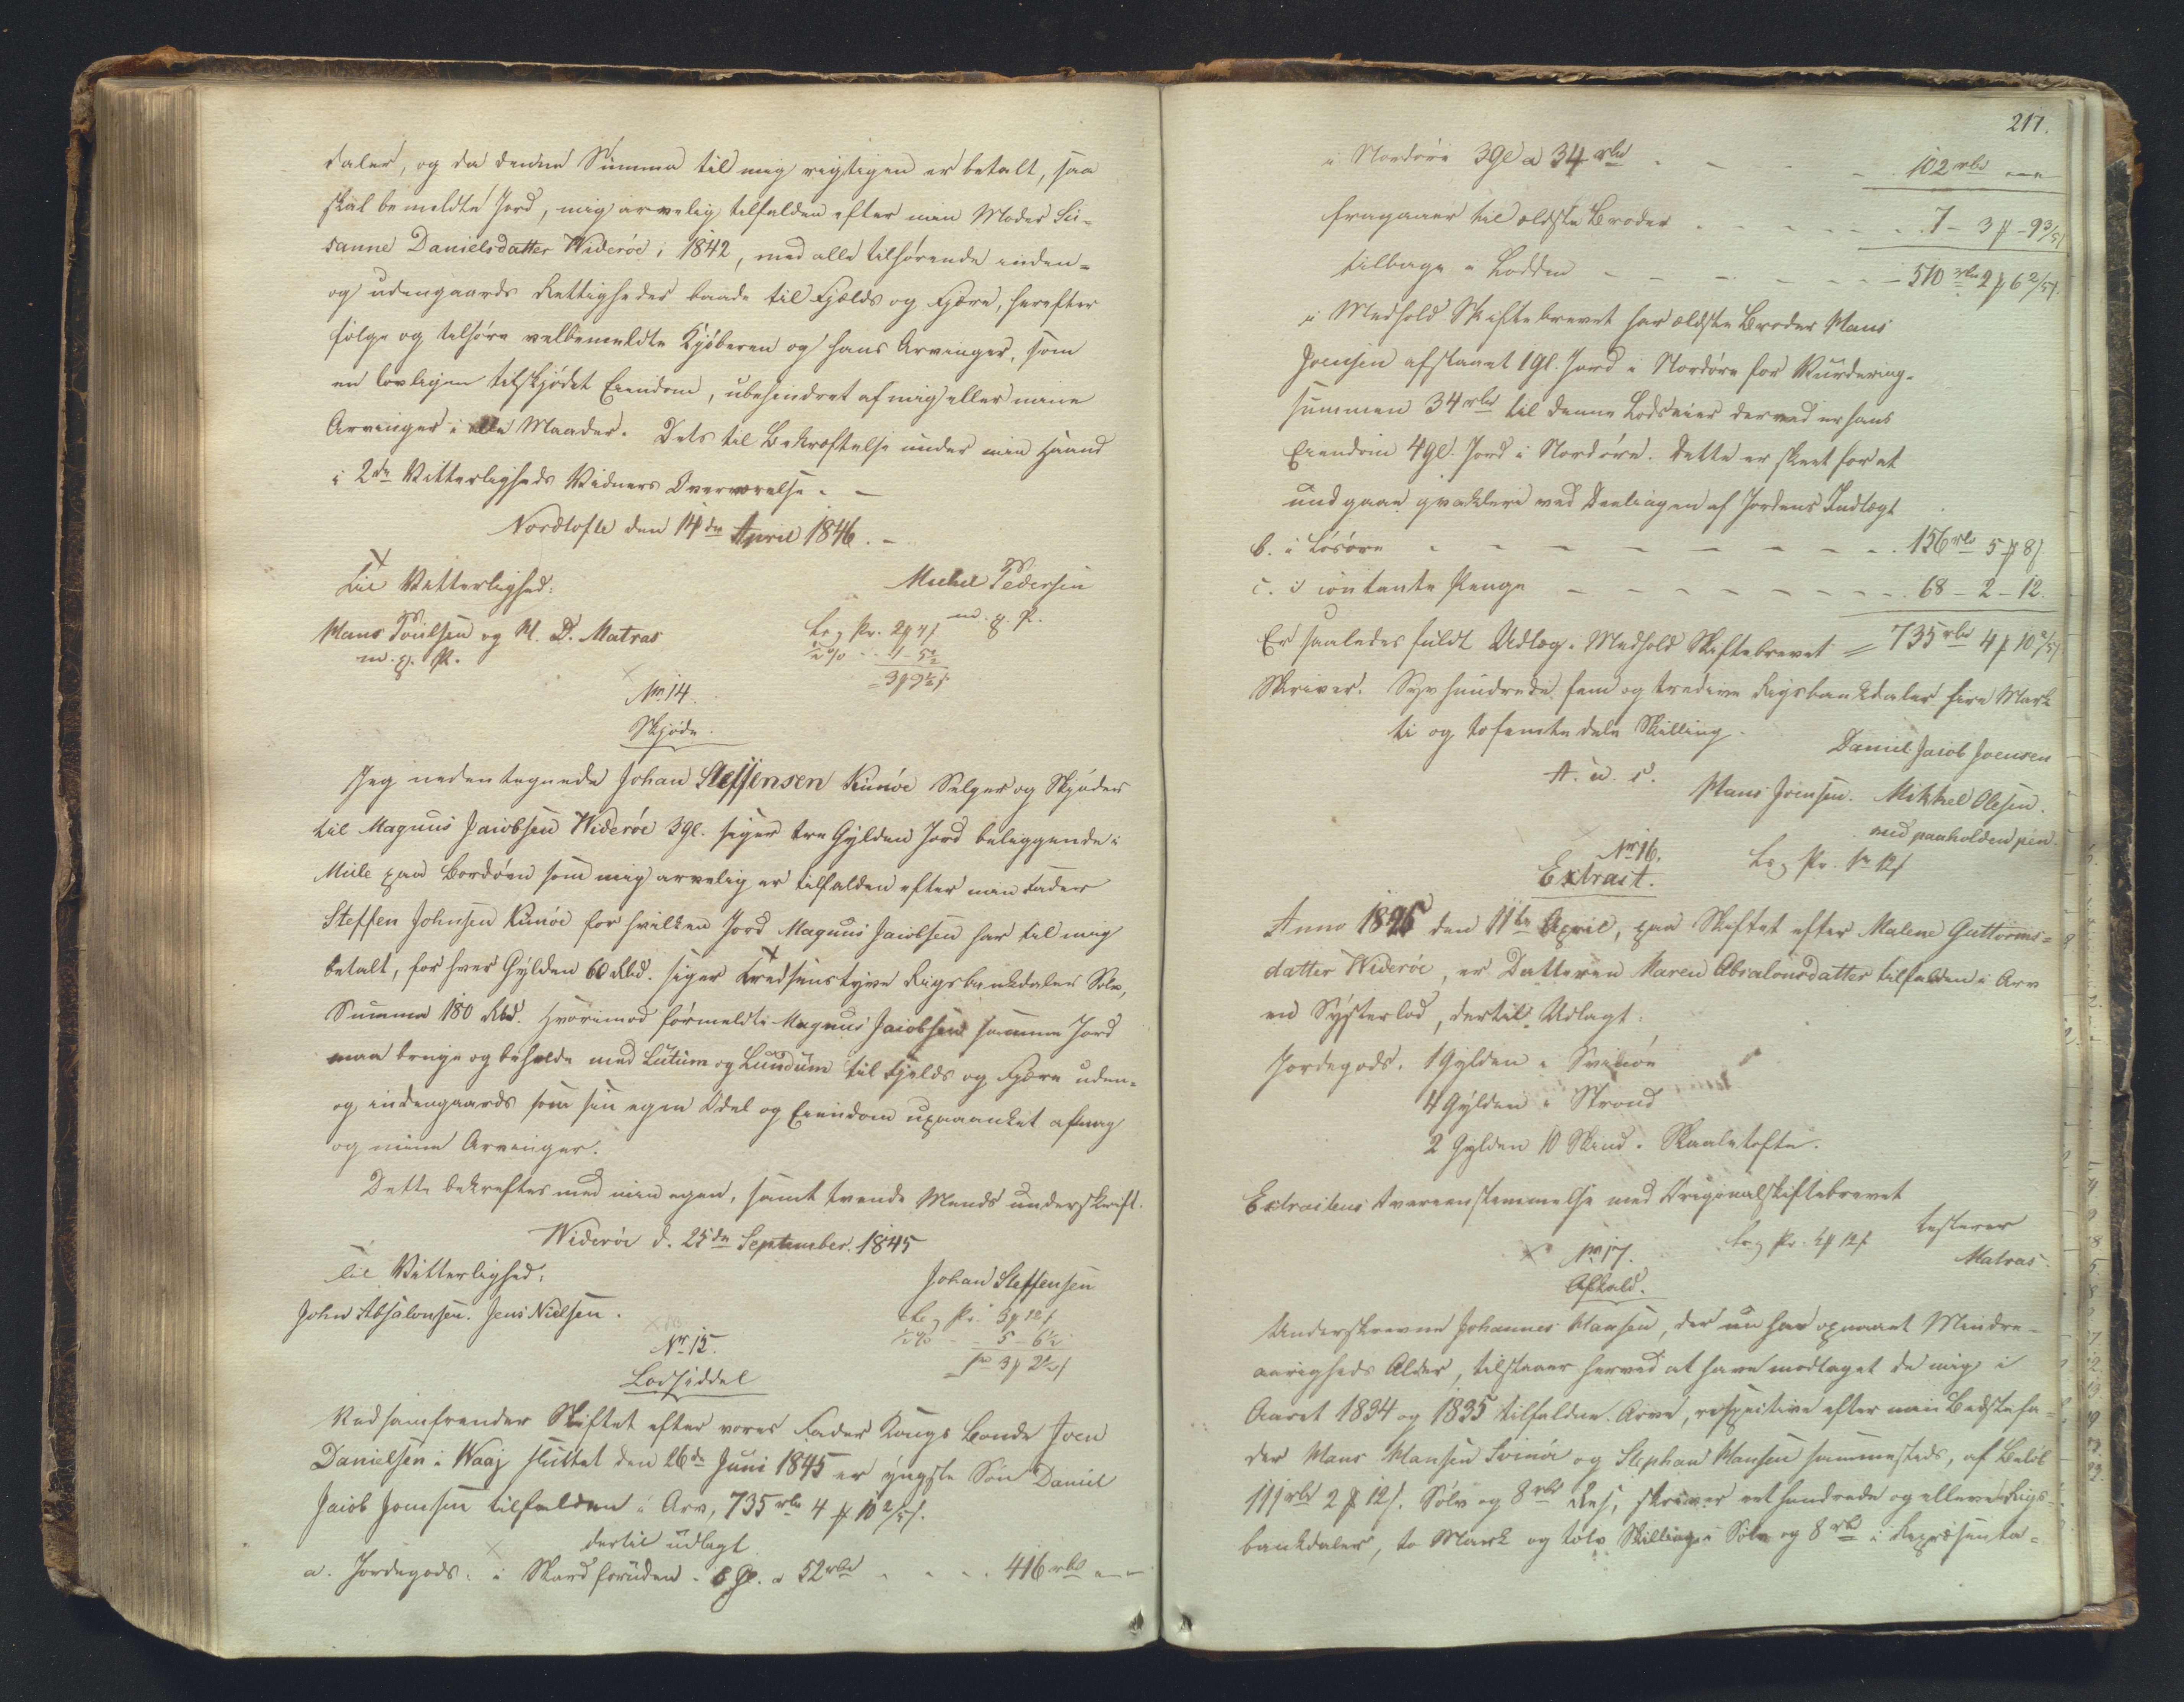 daler, og da denne Summa til mig rigtigen er betalt, saa
skal bemeldte Jord, mig arvelig tilfalden efter min Moder Su-
sanne Danielsdatter Widerøe i 1842, med alle tilhørende inden-
og udengaards Rettigheder baade til Fjelds og Fjære, herefter
følge og tilhøre velbemeldte Kjøberen og hans Arvinger, som
en lovligen tilskjødet Eiendom, ubehindret af mig eller mine
Arvinger i alle Maader. Dets til Bekræftelse under min Haand
i 2de Vitterligheds Vidners Overværelse. –
Nordtofte den 14de April 1846. –
Til Vitterlighed:
Michel Pedersen
m. g. P.
Hans Poulsen og M. D. Matras
m. g. P.
Nr 14.
Skjøde.
Jeg nedentegnede Johan Steffensen Kunøe Selger og Skjøder
til Magnus Jacobsen Widerøe 3 Gl. siger tre Gylden Jord beliggende i
Mule paa Bordøen som mig arvelig er tilfalden efter min Fader
Steffen Johnsen Kunøe for hvilken Jord Magnus Jacobsen har til mig
betalt, for hver Gylden 60 Rbd. siger Tredsenstyve Rigsbankdaler Sølv,
Summa 180 Rbd. Hvorimod formeldte Magnus Jacobsen samme Jord
maa bruge og beholde med Lutum og Lundum til Fjelds og Fjære uden-
og indengaards som sin egen Odel og Eiendom upaaanket af mig
og mine Arvinger.
Dette bekreftes med min egen, samt tvende Mænds underskrift.
Widerøe d. 25de September. 1845
Til Vitterlighed:
Johan Steffensen
John Absalonsen. Jens Nielsen.
Nr 15.
Lodseddel
Ved samfrender Skiftet efter vores Fader Kongs Bonde Joen
Danielsen i Waaj sluttet den 26de Juni 1845 er yngste Søn Daniel
Jacob Joensen tilfalden i Arv, 735 rbd 4 ꝑ 10 2/5 s.
dertil udlagt
a. Jordegods: i Skard foruden. 8 Gl. a 52 rbd . . . . 416 rbd
217.
i Nordøre 3 Gl a 34 rbd . – – – 102 rbd
fragaaer til ældste Broder . – – – – 7 – 3 ꝑ – 9 3/5 s
tilbage i Lodden – – – – 510 rbd 2 ꝑ 6 2/5 s.
i Medhold Skiftebrevet har ældste Broder Hans
Joensen afstaaet 1 Gl. Jord i Nordøre for Vurderings-
summen 34 rbd til denne Lodseier derved er hans
Eiendom 4 Gl. Jord i Nordøre. Dette er skeet for at
undgaae qvakleri ved Deelingen af Jordens Indtægt
b. i Løsøre – – – – – – – . 156 rbd 5 ꝑ 8 s
c. i contante Penge – – – – – – – . 68 – 2 – 12.
Er saaledes fuldt Udlæg i Medhold Skiftebrevet = 735 rbd 4 ꝑ 10 2/5 s
Skriver. Syv hundrede fem og tredive Rigsbankdaler fire Mark
ti og tofemtedele Skilling.
Daniel Jacob Joensen
A. u. s.
Hans Joensen. Mikkel Olesen.
med paaholden pen.
Nr 16.
Extract.
Anno 1826 den 11te April, paa Skiftet efter Malene Guttorms-
datter Widerøe, er Datteren Maren Absalonsdatter tilfalden i Arv
en Systerlod, dertil Udlagt:
Jordegods. 1 Gylden i Svinøe
4 Gylden i Strond
2 Gylden 10 Skind i Skaaletofte.
Extractens Overeenstemmelse med Originalskiftebrevet
testerer
Matras
Nr 17.
Afkald.
Underskrevne Johannes Hansen, der nu har opnaaet Mindre-
aarigheds Alder, tilstaaer herved at have modtaget de mig i
Aaret 1834 og 1835 tilfaldne Arve, respective efter min Bedstefa-
der Hans Hansen Svinøe og Stephan Hansen sammesteds, af Beløb
111 rbd 2 ꝑ 12 s. Sølv og 8 rbd Rep. skriver eet hundrede og elleve Rigs-
bankdaler, to Mark og tolv Skilling i Sølv og 8 rbd i Repræsenta-